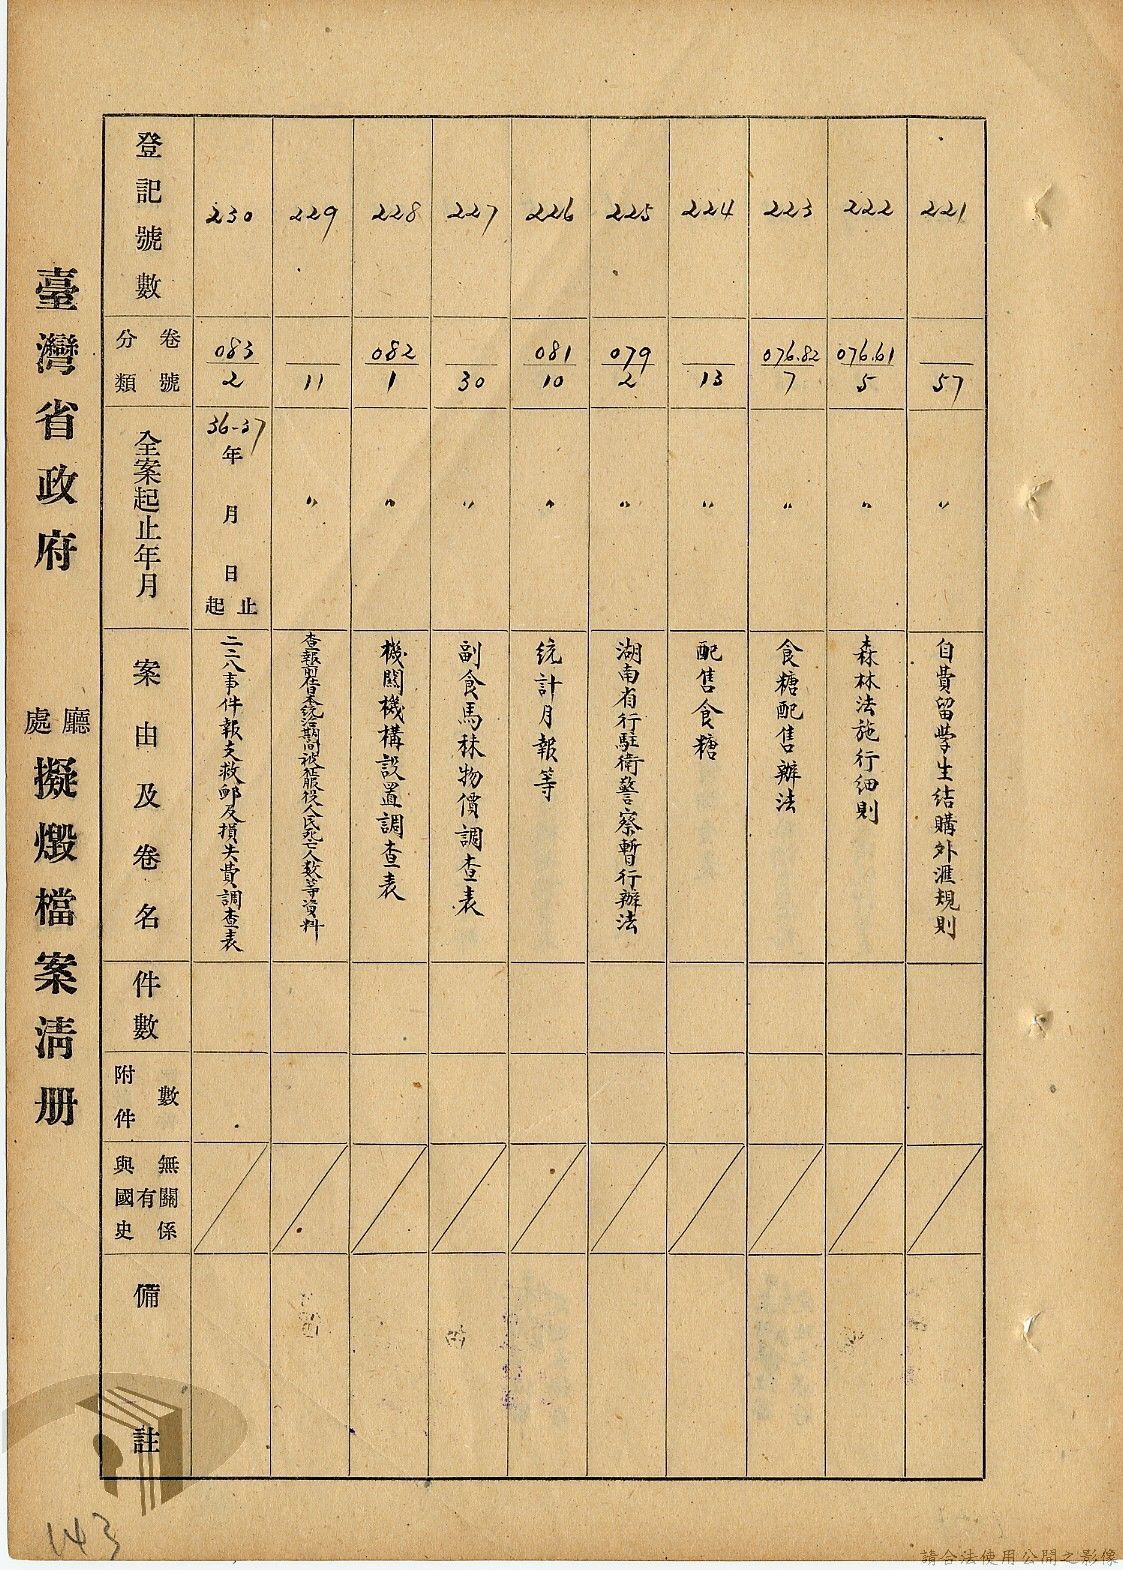 臺灣省政府 廳處 擬燬檔案清册
登記號數 230 229 228 227 226 225 224 223 222 221
分類卷號 083/2 /11 082/1 /30 081/10 079/2 /13 076.82/7 076.61/5 /57
全案起止年月 36-37年 月 日 起止 〃 〃 〃 〃 〃 〃 〃 〃 〃
案由及卷名
二二八事件報支救卹及損失費調查表
查報前在日本統治期間被征服役人民死亡人数等資料
機關機構設置調查表
副食馬秣物價調查表
統計月報等
湖南省行駐衛警察暫行辦法
配售食糖
食糖配售辦法
森林法施行細則
自費留學生結購外滙規則
件數
附件數
與國史有無關係
備註
143
請合法使用公開之影像